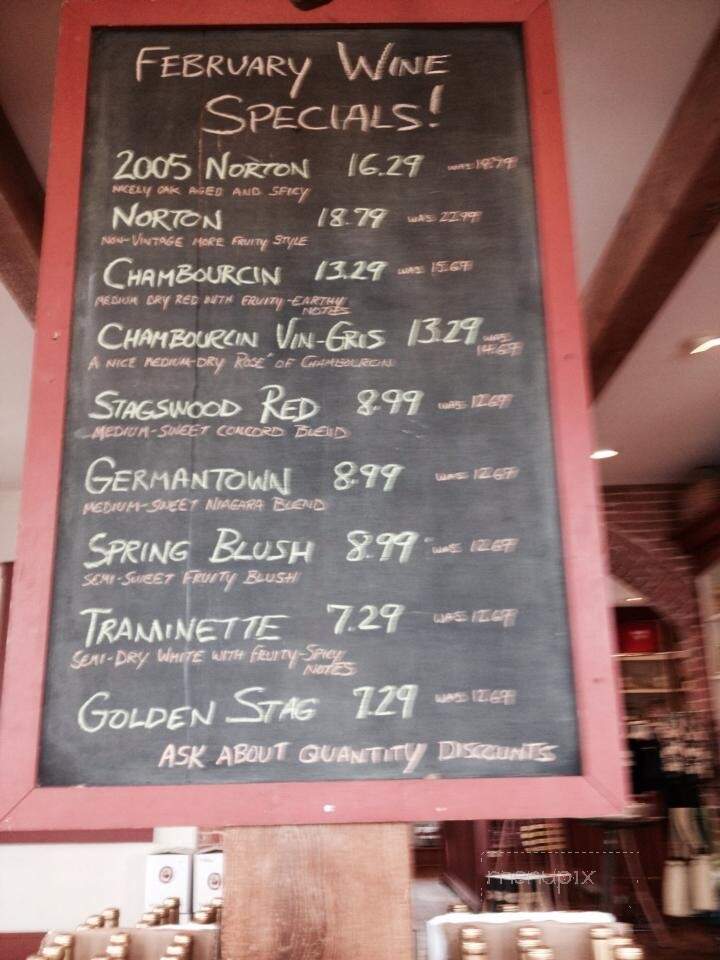 FEBRUARY WINE
SPECIALS!
2005 NORTON 16.29 WAS 19.79
NICELY OAK AGED AND SPICY
NORTON 18.79 WAS 22.99
NON-VINTAGE MORE FRUITY STYLE
CHAMBOURCIN 13.29 WAS 15.69
MEDIUM DRY RED WITH FRUITY-EARTHY
NOTES
CHAMBOURCIN VIN-GRIS 13.29 WAS
14.69
A NICE MEDIUM-DRY ROSÉ OF CHAMBOURCIN
STAGSWOOD RED 8.99 WAS 12.69
MEDIUM-SWEET CONCORD BLEND
GERMANTOWN 8.99 WAS 12.69
MEDIUM-SWEET NIAGARA BLEND
SPRING BLUSH 8.99 WAS 12.69
SEMI-SWEET FRUITY BLUSH
TRAMINETTE 7.29 WAS 12.69
SEMI-DRY WHITE WITH FRUITY-SPICY
NOTES
GOLDEN STAG 7.29 WAS 12.69
ASK ABOUT QUANTITY DISCOUNTS
menupix